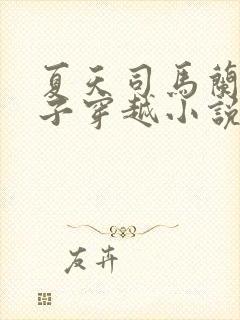 夏天司馬蘭
子穿越小說
友卉